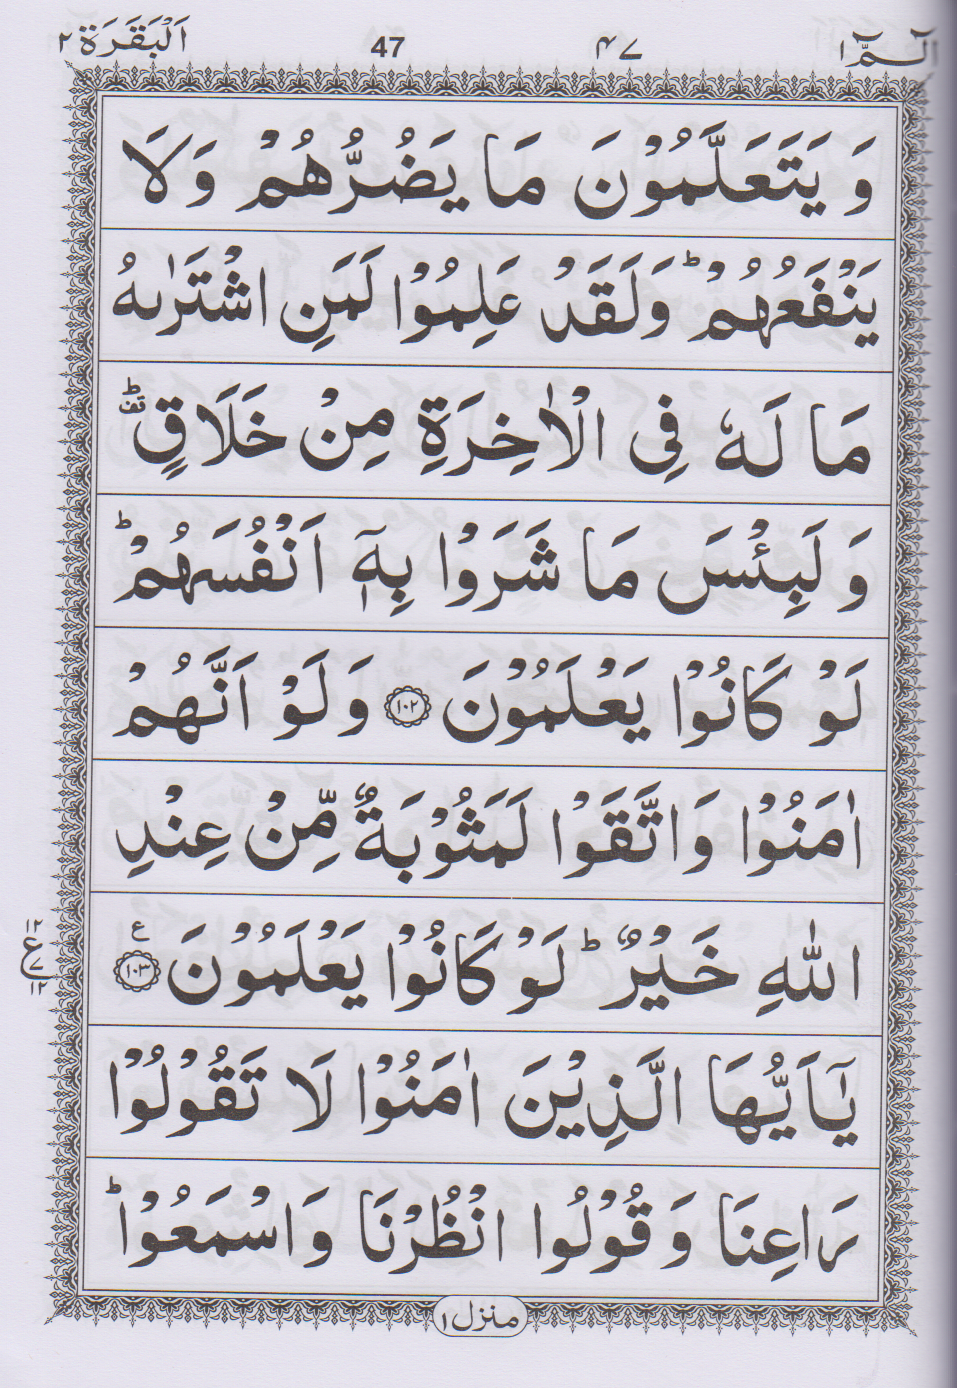 الٓـمّٓ ١ ٤٧ 47 اَلْبَقَرَة ٢
وَ يَتَعَلَّمُوْنَ مَا يَضُرُّهُمْ وَلَا
يَنْفَعُهُمْ ؕ وَلَقَدْ عَلِمُوْا لَمَنِ اشْتَرٰىهُ
مَا لَهٗ فِي الْاٰخِرَةِ مِنْ خَلَاقٍ ؕ قف
وَ لَبِئْسَ مَا شَرَوْا بِهٖۤ اَنْفُسَهُمْ ؕ
لَوْ كَانُوْا يَعْلَمُوْنَ ۝١٠٢ وَ لَوْ اَنَّهُمْ
اٰمَنُوْا وَ اتَّقَوْا لَمَثُوْبَةٌ مِّنْ عِنْدِ
اللّٰهِ خَيْرٌ ؕ لَوْ كَانُوْا يَعْلَمُوْنَ ۝١٠٣ ع
١٢ ع ٧ ١٢
يٰۤاَيُّهَا الَّذِيْنَ اٰمَنُوْا لَا تَقُوْلُوْا
رَاعِنَا وَ قُوْلُوا انْظُرْنَا وَ اسْمَعُوْا ؕ
منزل ١